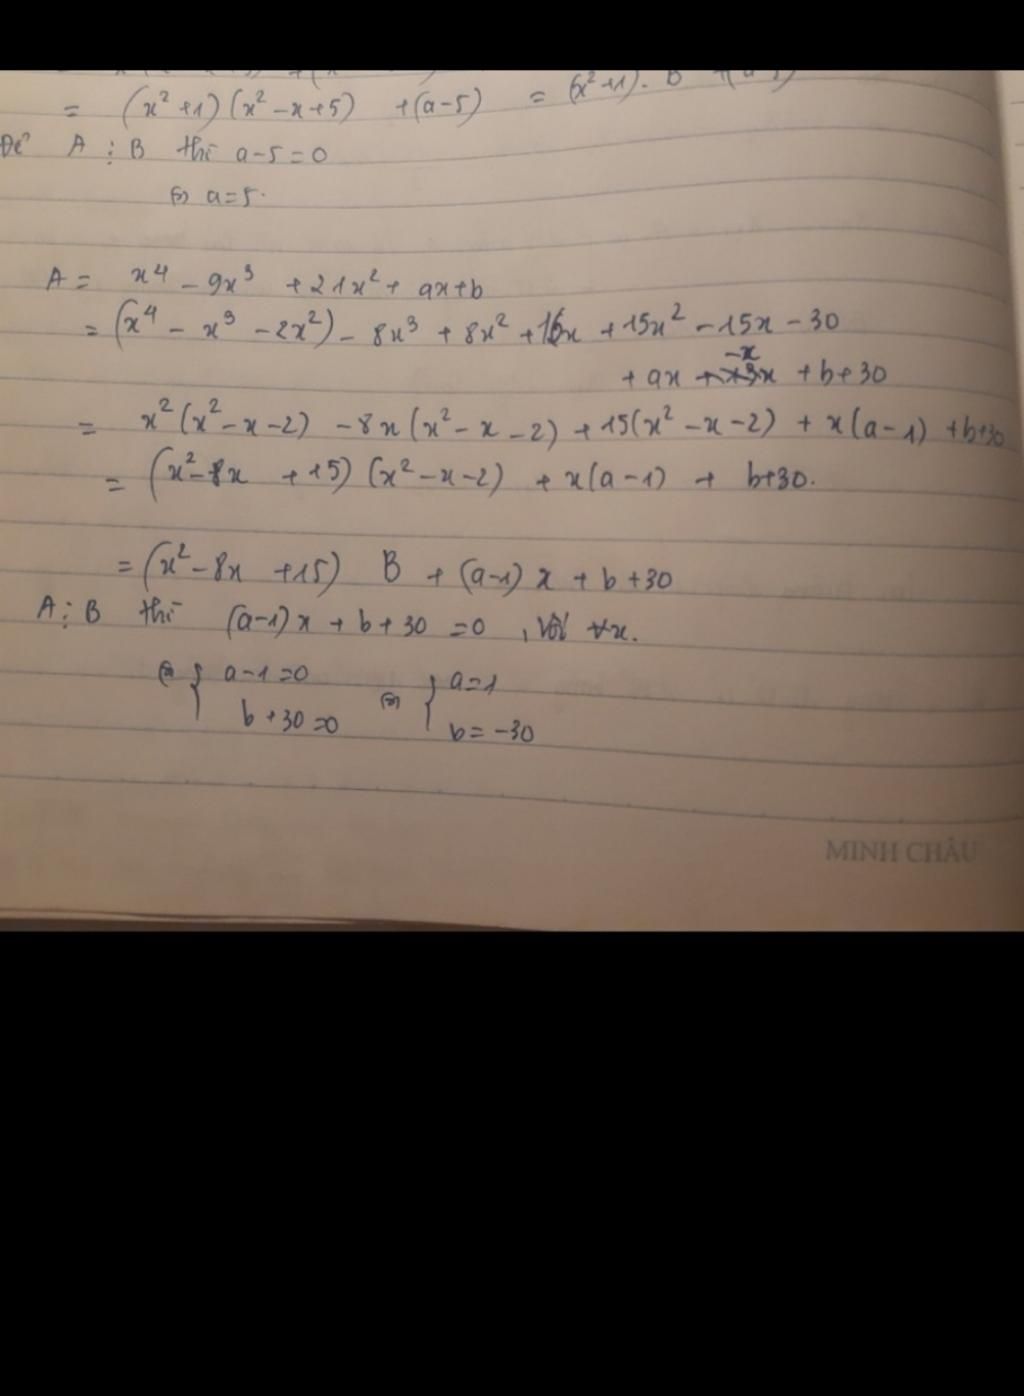 = (x² + 1) (x² - x + 5) + (a - 5) = (x² + 1). B
Để A ⋮ B thì a - 5 = 0
⇔ a = 5.
A = x⁴ - 9x³ + 21x² + ax + b
= (x⁴ - x³ - 2x²) - 8x³ + 8x² + 16x + 15x² - 15x - 30
+ ax - x + b + 30
= x² (x² - x - 2) - 8x (x² - x - 2) + 15(x² - x - 2) + x(a - 1) + b + 30
= (x² - 8x + 15) (x² - x - 2) + x(a - 1) + b + 30.
= (x² - 8x + 15) B + (a - 1) x + b + 30
A ⋮ B thì (a - 1) x + b + 30 = 0 , với ∀x.
⇔ { a - 1 = 0 ⇔ { a = 1
b + 30 = 0 b = -30
MINH CHÂU